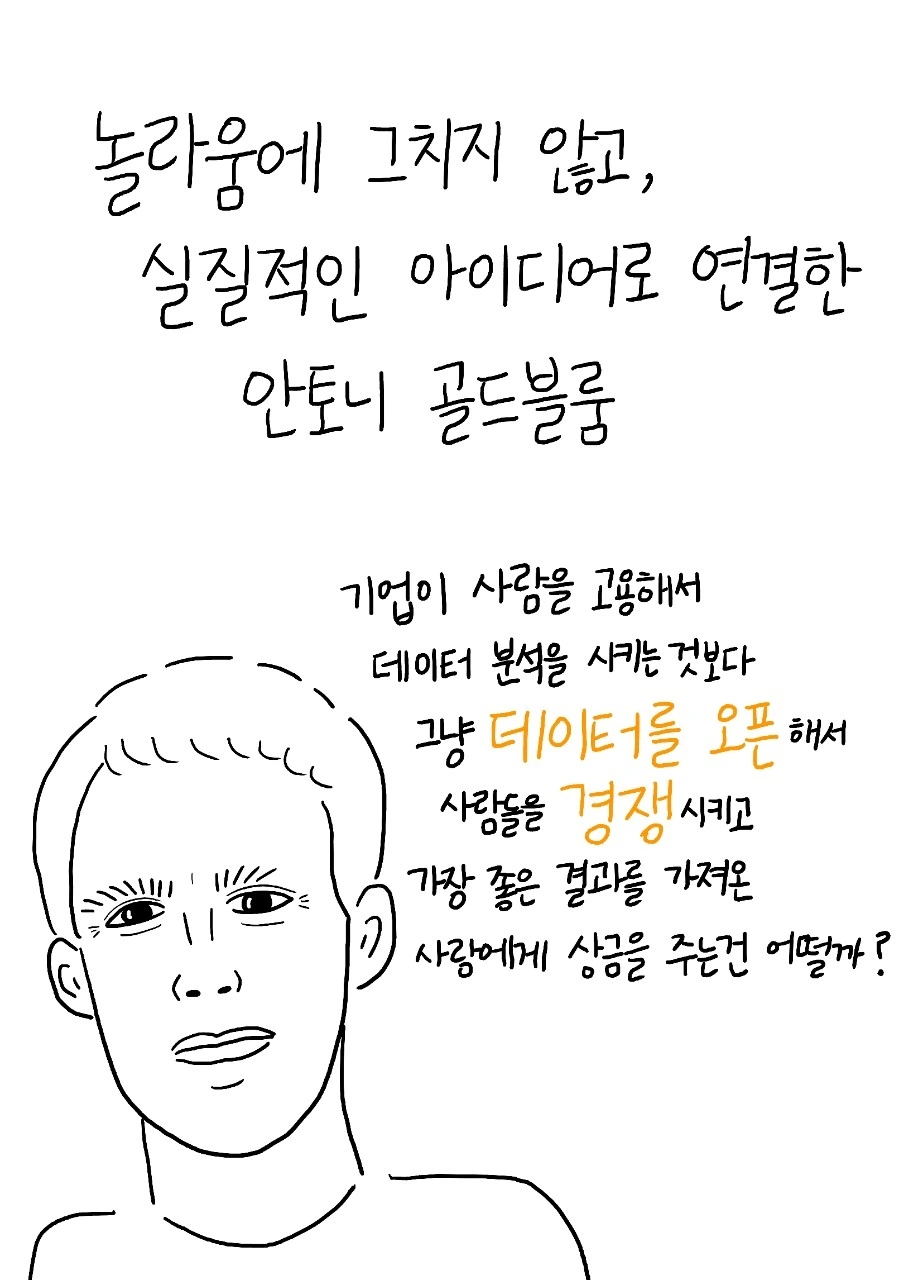 놀라움에 그치지 않고,
실질적인 아이디어로 연결한
안토니 골드블룸
기업이 사람을 고용해서
데이터 분석을 시키는 것보다
그냥 데이터를 오픈해서
사람들을 경쟁시키고
가장 좋은 결과를 가져온
사람에게 상금을 주는건 어떨까?